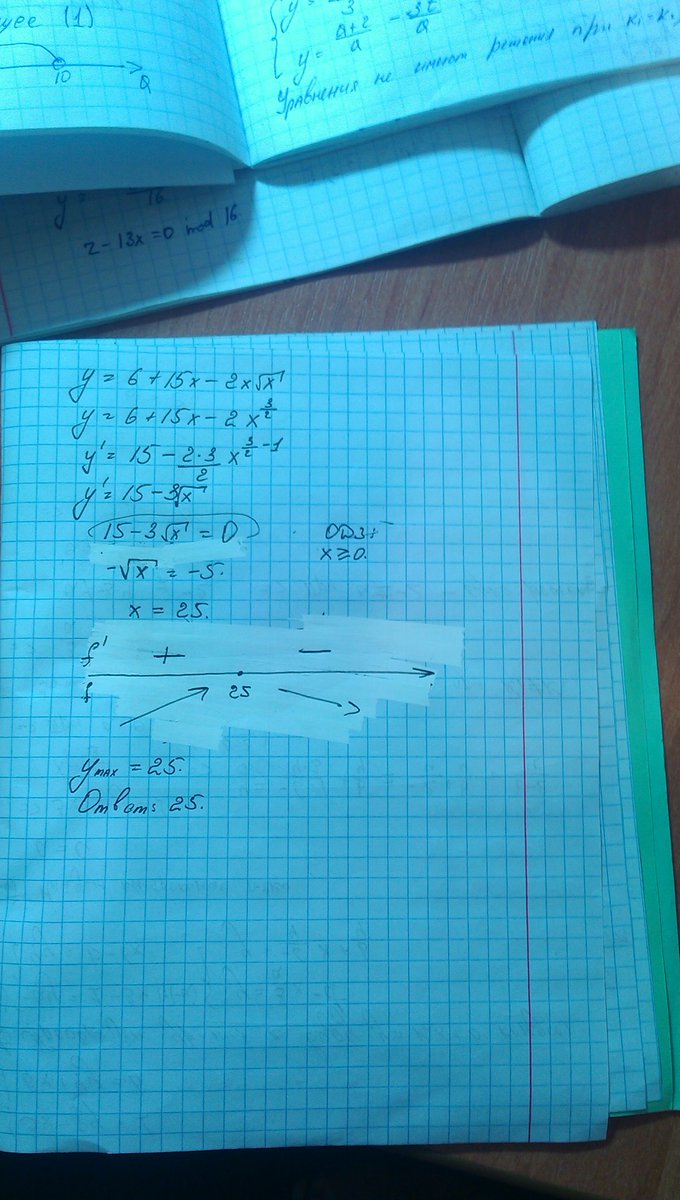 ущее (1)
10 a
y = 3
y = a+2/a - 3x/a
Уравнения не имеют решения при k₁=k
y = 16
2-13x=0 mod 16
y = 6+15x-2x√x
y = 6+15x-2x^(3/2)
y' = 15-(2·3)/2 x^(3/2-1)
y' = 15-3√x
15-3√x = 0 ОДЗ:
-√x = -5. x≥0.
x = 25.
f' + -
f 25
y max = 25.
Ответ: 25.